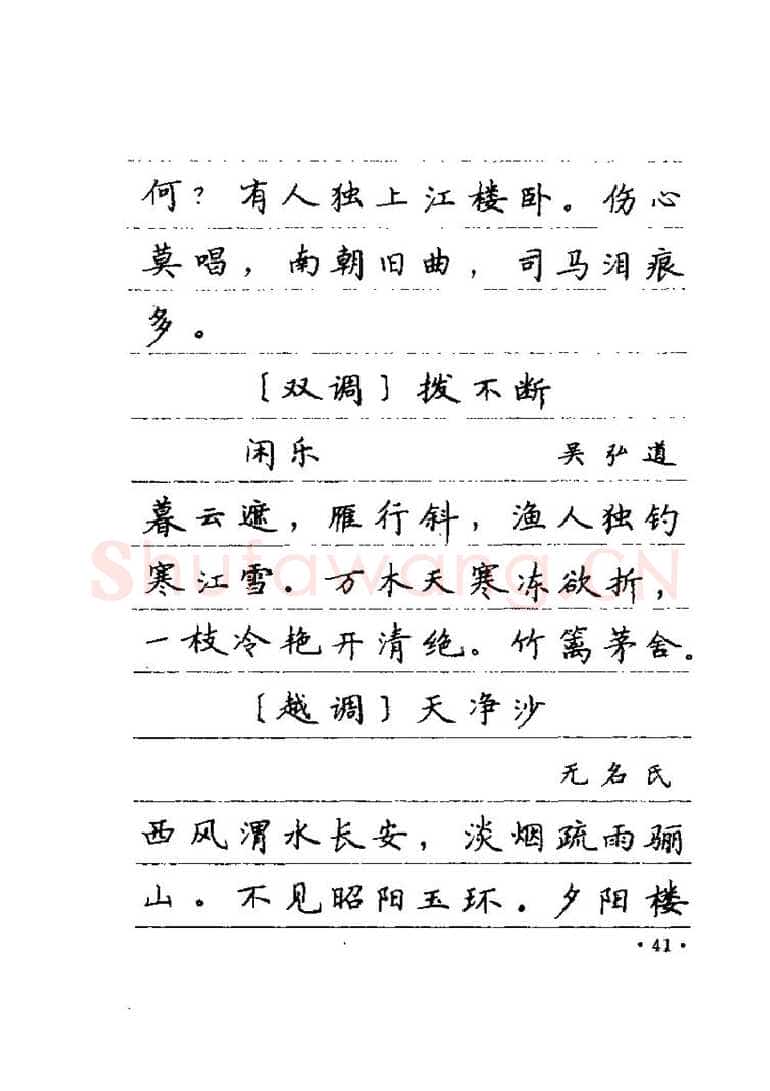 何？有人独上江楼卧。伤心
莫唱，南朝旧曲，司马泪痕
多。
〔双调〕拨不断
闲乐 吴弘道
暮云遮，雁行斜，渔人独钓
寒江雪．万木天寒冻欲折，
一枝冷艳开清绝。竹篱茅舍。
〔越调〕天净沙
无名氏
西风渭水长安，淡烟疏雨骊
山。不见昭阳玉环．夕阳楼
·41·
Shufawang.CN